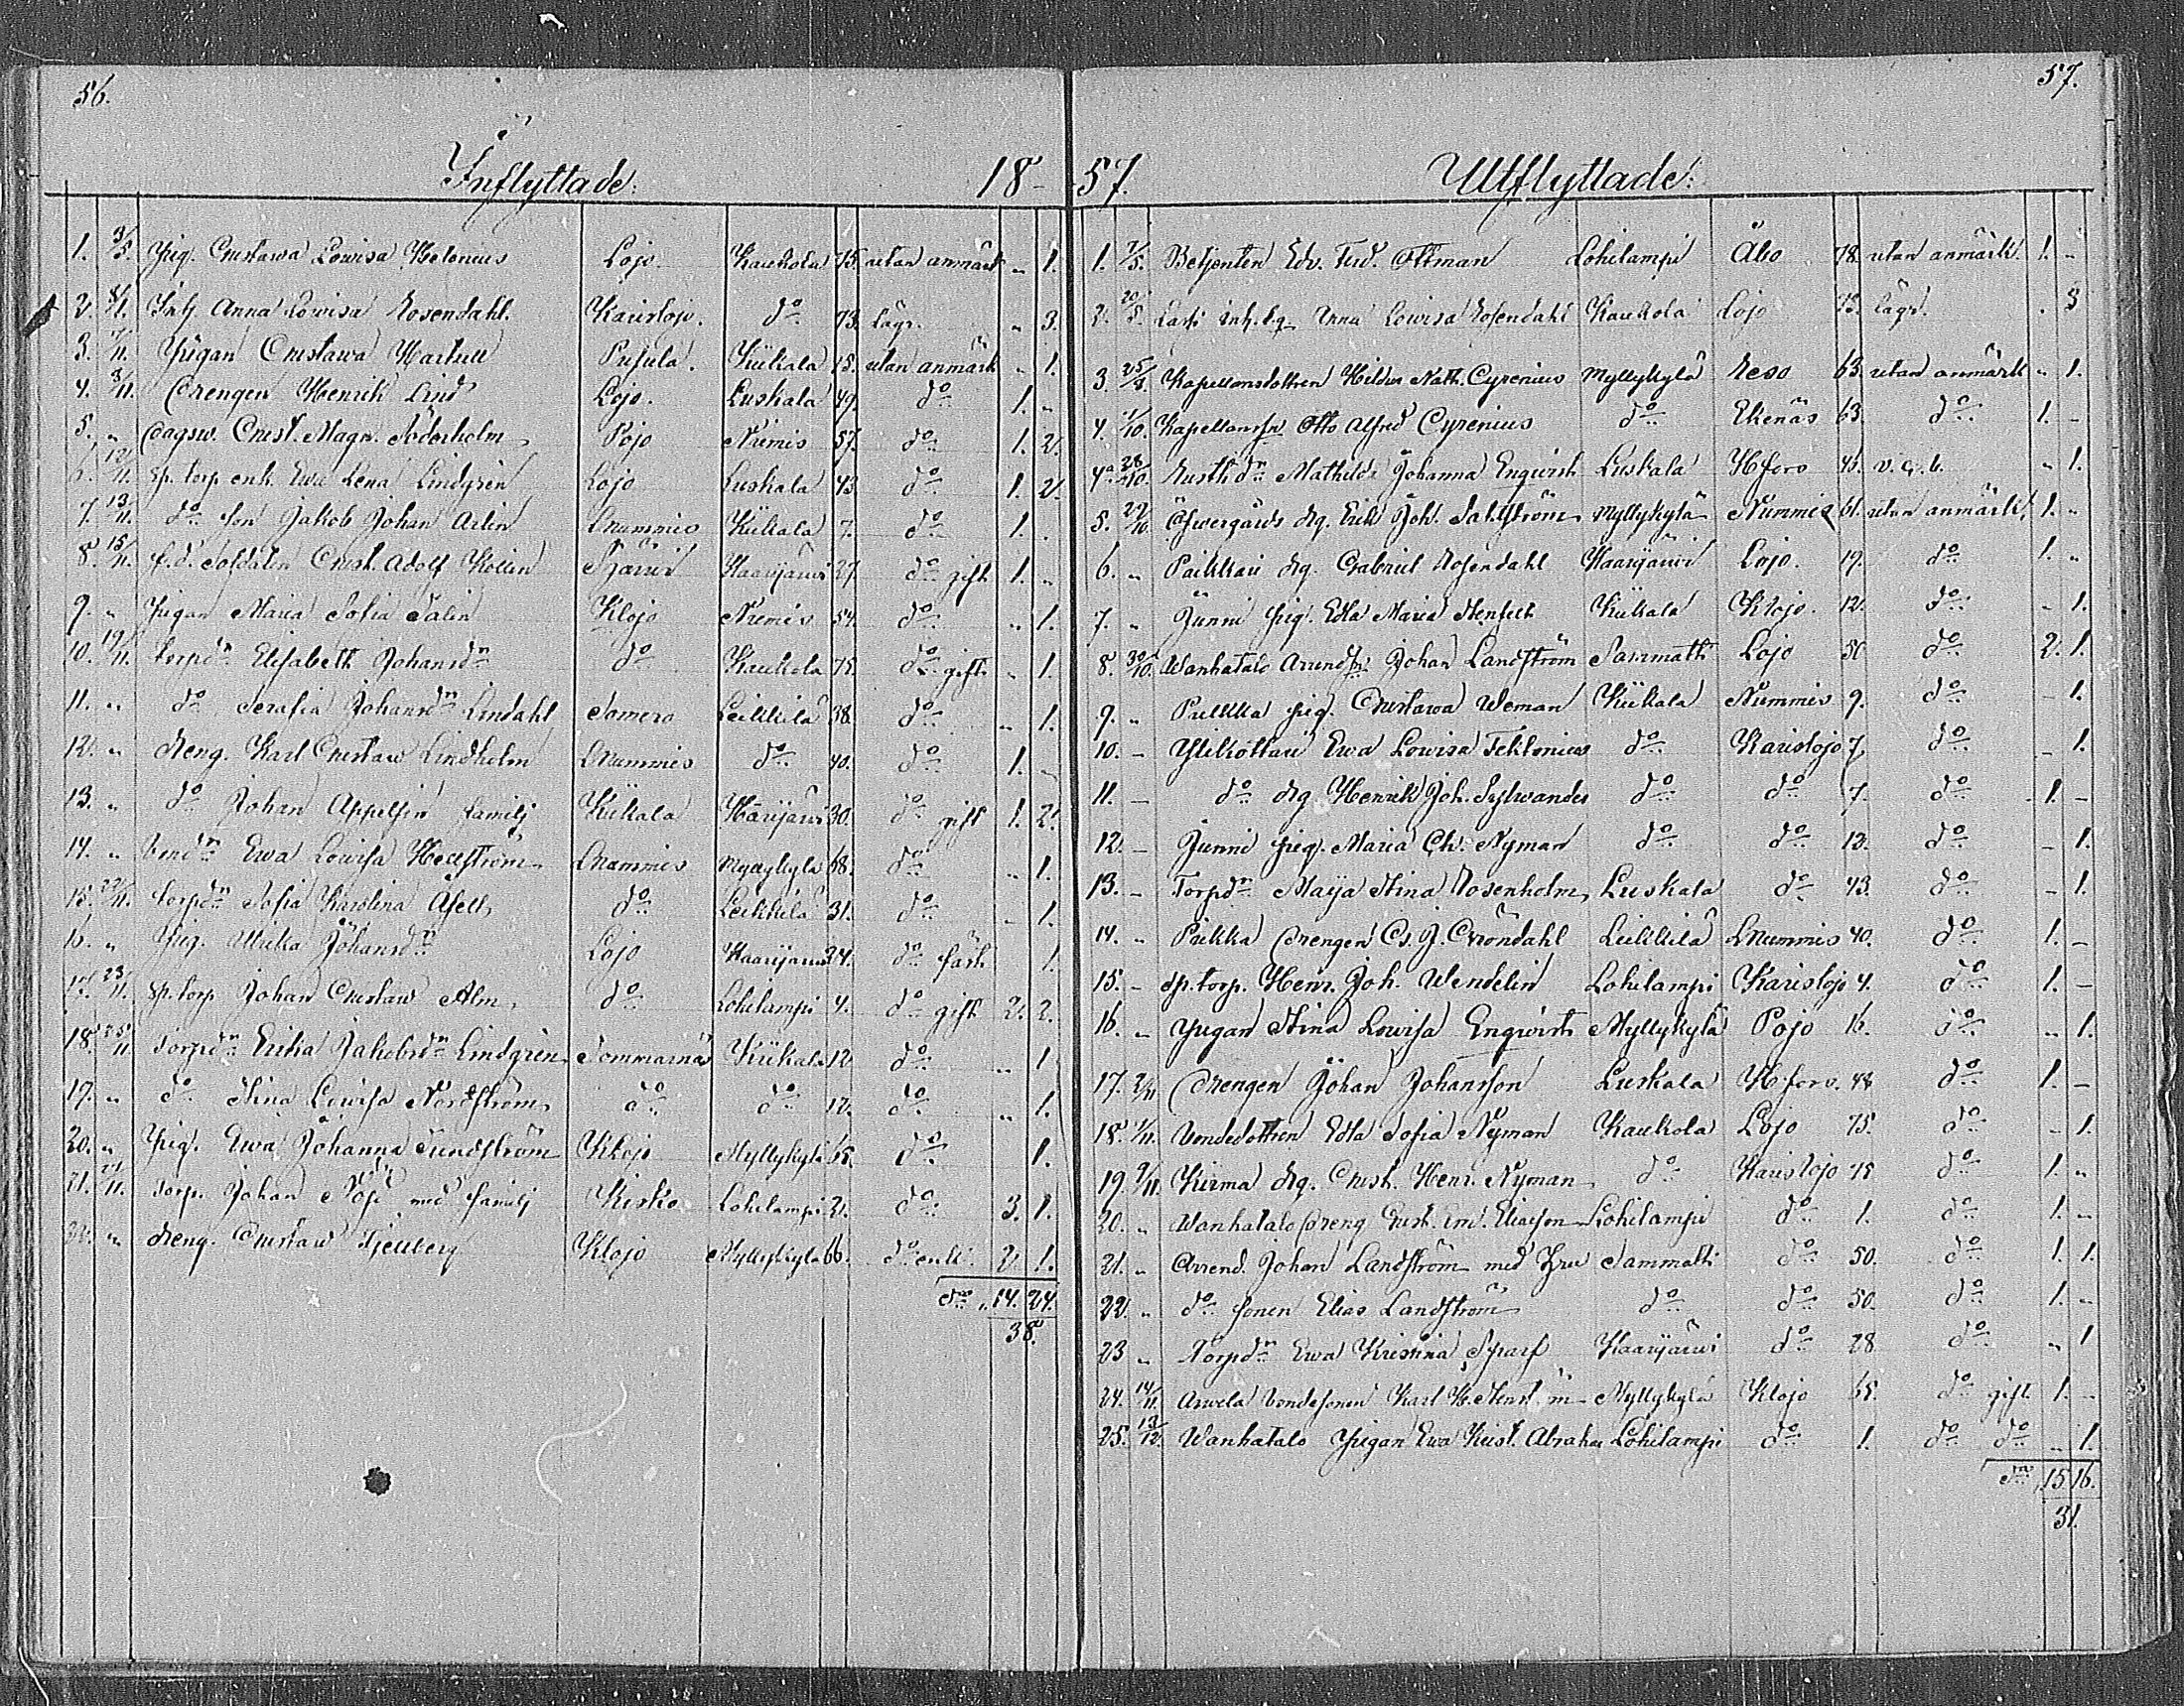 56.
Inflyttade. 18
1. 3/5. Pig. Gustawa Lowisa Helenius Lojo Kaukola 75. utan anmärk „ 1.
2. Inh. Anna Lowisa Rosendahl. Karislojo. do 73. lagf. „ 3.
3. 7/11. Pigan Gustawa Martell Pusula. Kiikala 15. utan anmärk „ 1.
4. 8/11. Drengen Henrik Lind Lojo. Luskala 49. do 1. „
5. „ Dagsw. Gust. Magn. Söderholm Pojo Niemis 57. do 1. 2.
6. 12/11. Sp. torp. enk. Ewa Lena Lindgren Lojo Luskala 43. do 1. 2.
7. 13/11. do son Jakob Johan Arlin Nummis Kiikala 7. do 1.
8. 15/11. f.d. Soldaten Gust. Adolf Kollin Haarijärwi 27. do gift 1. „
9. „ Pigan Maria Sofia Salin Klojo Niemis 54. do „ 1.
10. 19/11. torpdn Elisabeth Johansdn do Kaukola 75. do gift. „ 1.
11. „ do Serafia Johansdn Lindahl Somero Leikkilä 38. do „ 1.
12. „ dreng. Karl Gustaw Lindholm Nummis do 40. do 1. „
13. „ do Johan Appelgren familj Kiikala Haarijärwi 30. do gift 1. 2.
14. „ bonddn Ewa Lowisa Hellström Nummis Myllykylä 68. do „ 1.
15. 22/11. torpdn Sofia Karolina Asell do Leikkilä 31. do „ 1.
16. „ Pig. Ulrika Johansdn Lojo Haarijärwi 24. do fäst 1.
17. 23/11. Sp. torp. Johan Gustaw Alm do Lohilampi 4. do gift 2. 2.
18. 25/11. Torpdn Erika Jakobsdn Lindgren Sommarnäs Kiikala 12 do „ 1.
19. „ do Stina Lowisa Nordström do do 12. do „ 1.
20. „ Pig. Ewa Johanna Sundström Klojo Myllykylä 65. do 1.
21. 27/11. Torp. Johan med familj Kisko Lohilampi 2. do 3. 1.
22. „ dreng. Gustaw Fjellberg Klojo Myllykylä 66. do enkl. 2 1.
Sma „ 14. 24.
38.
57.
57. Utflyttade.
1. 7/5. Betjenten Edv. Ferd. Ottman Lohilampi Åbo 78. utan anmärk. 1. „
2. 20/5. Inh. Anna Lowisa Rosendahl Kaukola Lojo 73. lagf. . 3
3. 25/8. Kapellansdottren Hilda Nath. Cyrenius Myllykylä Reso 63. utan anmärk „ 1.
4. 1/10. Kapellanssn Otto Alfred Cyrenius do Ekenäs 63. do 1. -
4a 28/10. Rusthdn Mathilda Johanna Enqwist Luskala Hfors 45. „ 1.
5. 29/10. Öfwergårds drg. Erik Joh. Sahlström Myllykylä Nummis 61. utan anmärk. 1. „
6. „ Paikkari drg. Gabriel Rosendahl Haarijärwi Lojo. 19. do 1. „
7. „ Junni pig. Edla Maria Stenfelt Kiikala Klojo. 12. do - 1.
8. 30/10. Wanhatalo Arrendsn Johan Landström Sammatti Lojo 50 do 2. 1.
9. „ Pukkka pig. Gustawa Weman Kiikala Nummis 9. do - 1.
10. - Ylikottari Ewa Lowisa Teklenius do Karislojo 7. do - 1.
11. - do drg Henrik Joh. Sylwander do do 7. do 1. -
12. - Junni pig. Maria Ch. Nyman do do 13. do - 1.
13. - Torpdn Maija Stina Rosenholm Luskala do 43. do - 1.
14. „ Pukka Drengen G. J. Gröndahl Leikkilä Nummis 40. do 1. -
15. - Sp. torp. Henr. Joh. Wendelin Lohilampi Karislojo 4. do 1. -
16. „ Pigan Stina Lowisa Enqwist Myllykylä Pojo 16. do „ 1.
17. 2/11 Drengen Johan Johansson Luskala Hfors. 48 do 1. -
18. 7/11. Bondedottren Edla Sofia Nyman Kaukola Lojo 75. do - 1.
19. 9/11. Kiirma drg. Gust. Henr. Nyman do Karislojo 75 do 1. „
20. „ Wanhatalo Dreng Gust. Em. Eliasson Lohilampi do 1. do 1. „
21. „ Arrend. Johan Landström med hru Sammatti do 50. do 1. 1.
22. „ do sonen Elias Landström do do 50. do 1. „
23 „ Torpdn Ewa Kristina Sparf Haarijärwi do 28 do „ 1
24. 14/11. Arwela bondesonen Karl H. Stenström Myllykylä Klojo 65. do gift 1. -
25. 12/12. Wanhatalo Pigan Ewa Krist. Abraha Lohilampi do 1. do do „ 1.
Sma 15. 16.
31.